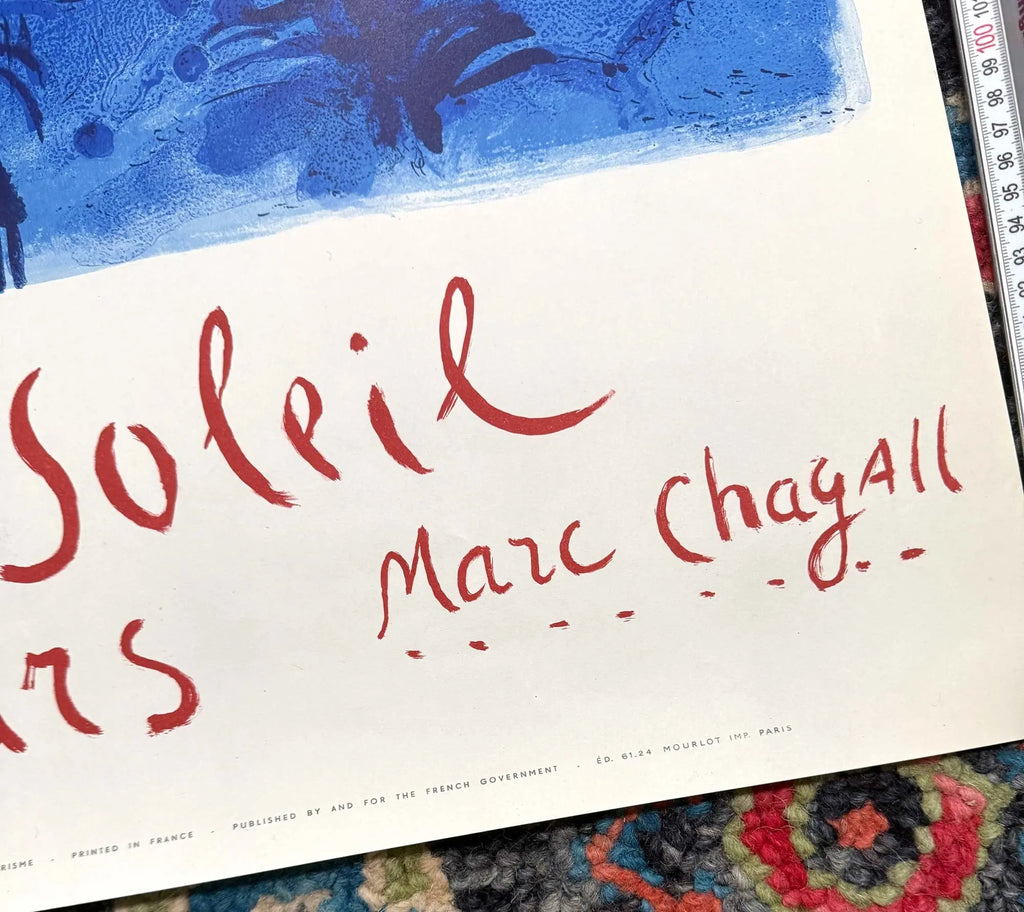 Soleil
Marc Chagall
rs
RISME - PRINTED IN FRANCE - PUBLISHED BY AND FOR THE FRENCH GOVERNMENT - ÉD. 61.24 MOURLOT IMP. PARIS
100
99
98
97
96
95
94
93